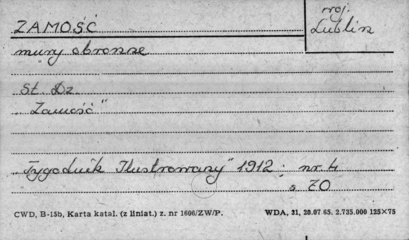 ZAMOŚĆ
woj.
Lublin
mury obronne
St. Dz
„Zamość"
„Tygodnik Ilustrowany" 1912 : nr. 4
s 70
CWD, B-15b, Karta katal. (z liniat.) z. nr 1606/ZW/P.
WDA, 31, 20.07 65. 2.735.000 125×75